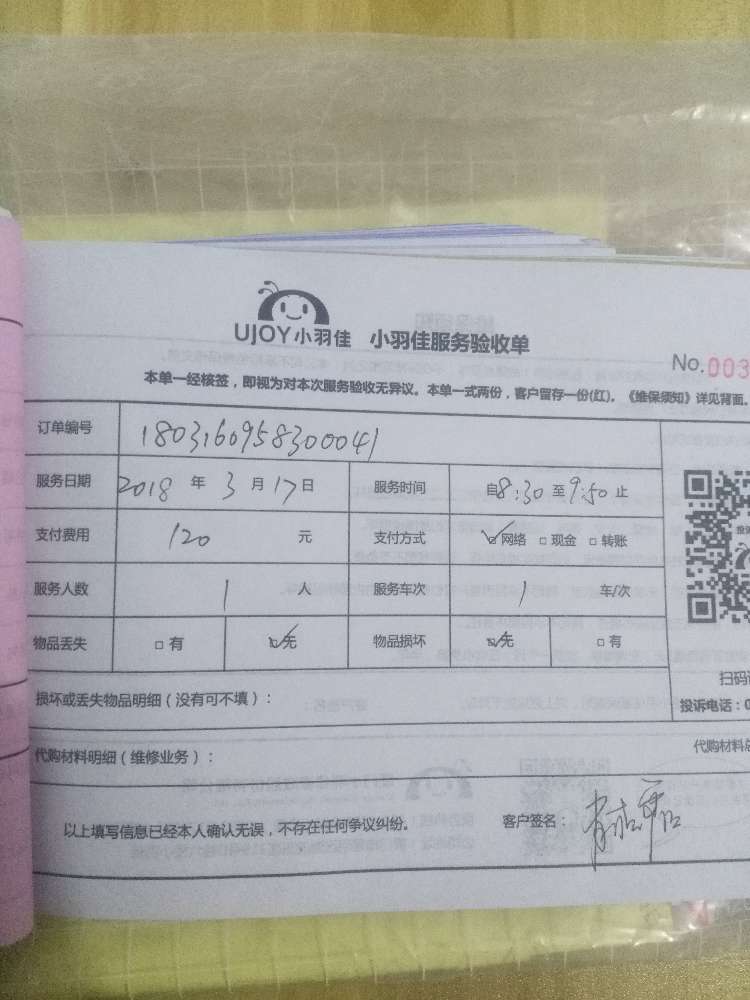 UJOY小羽佳 小羽佳服务验收单
No.003
本单一经核签，即视为对本次服务验收无异议。本单一式两份，客户留存一份(红)。《维保须知》详见背面。
订单编号 1803160958300041
服务日期 2018 年 3 月 17 日 服务时间 自8:30 至 9:50 止
支付费用 120 元 支付方式 ☑网络 □现金 □转账
服务人数 1 人 服务车次 1 车/次
物品丢失 □有 ☑无 物品损坏 ☑无 □有
扫码
损坏或丢失物品明细（没有可不填）： 投诉电话：0
代购材料明细（维修业务）： 代购材料总
以上填写信息已经本人确认无误，不存在任何争议纠纷。 客户签名：